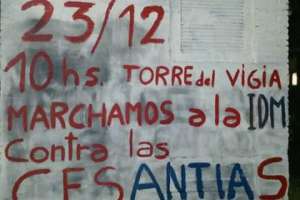 23/12
10hs. TORRE del VIGIA
MARCHAMOS a la IDM
Contra las
CESANTIAS